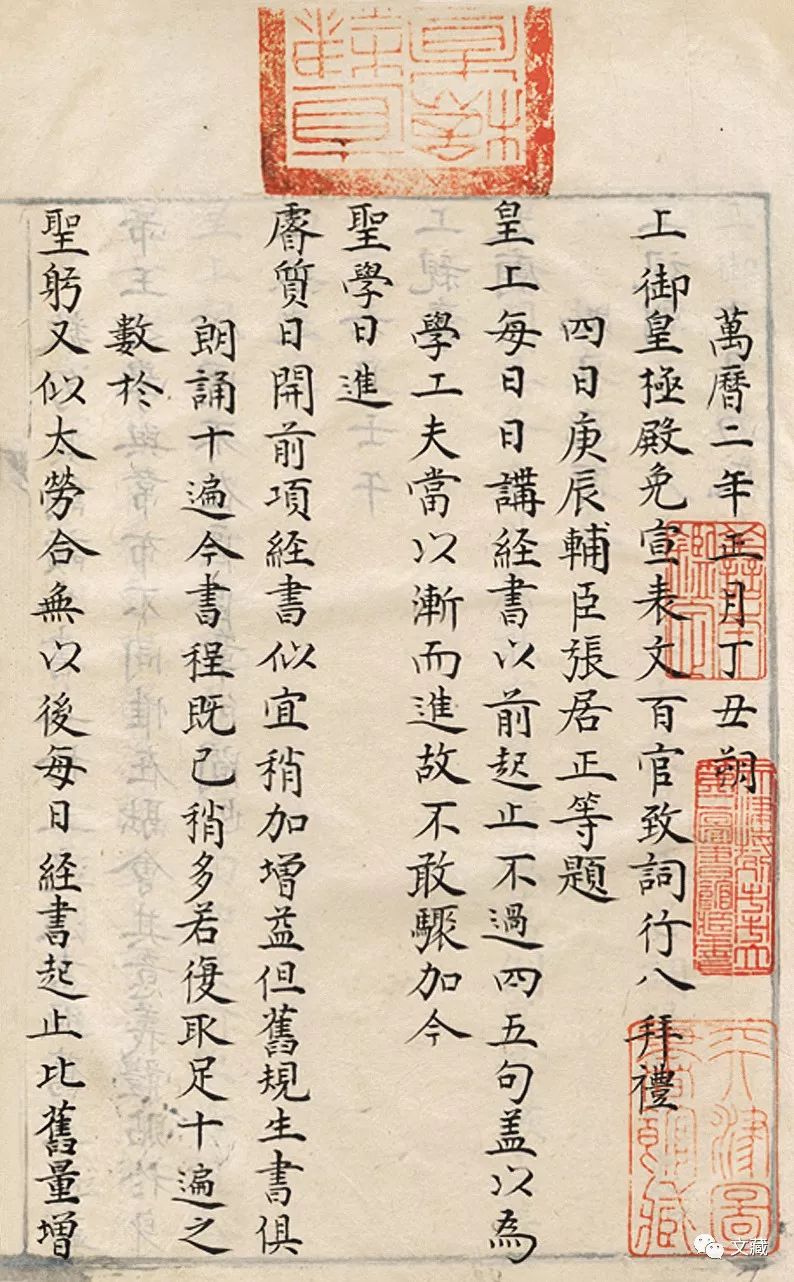 萬曆二年正月丁丑朔
上御皇極殿免宣表文百官致詞行八拜禮
四日庚辰輔臣張居正等題
皇上每日日講經書以前起止不過四五句盖以為
學工夫當以漸而進故不敢驟加今
聖學日進
睿質日開前項經書似宜稍加增益但舊規生書俱
朗誦十遍今書程既已稍多若復取足十遍之
數於
聖躬又似太勞合無以後每日經書起止比舊量增
天津圖書館藏
文藏